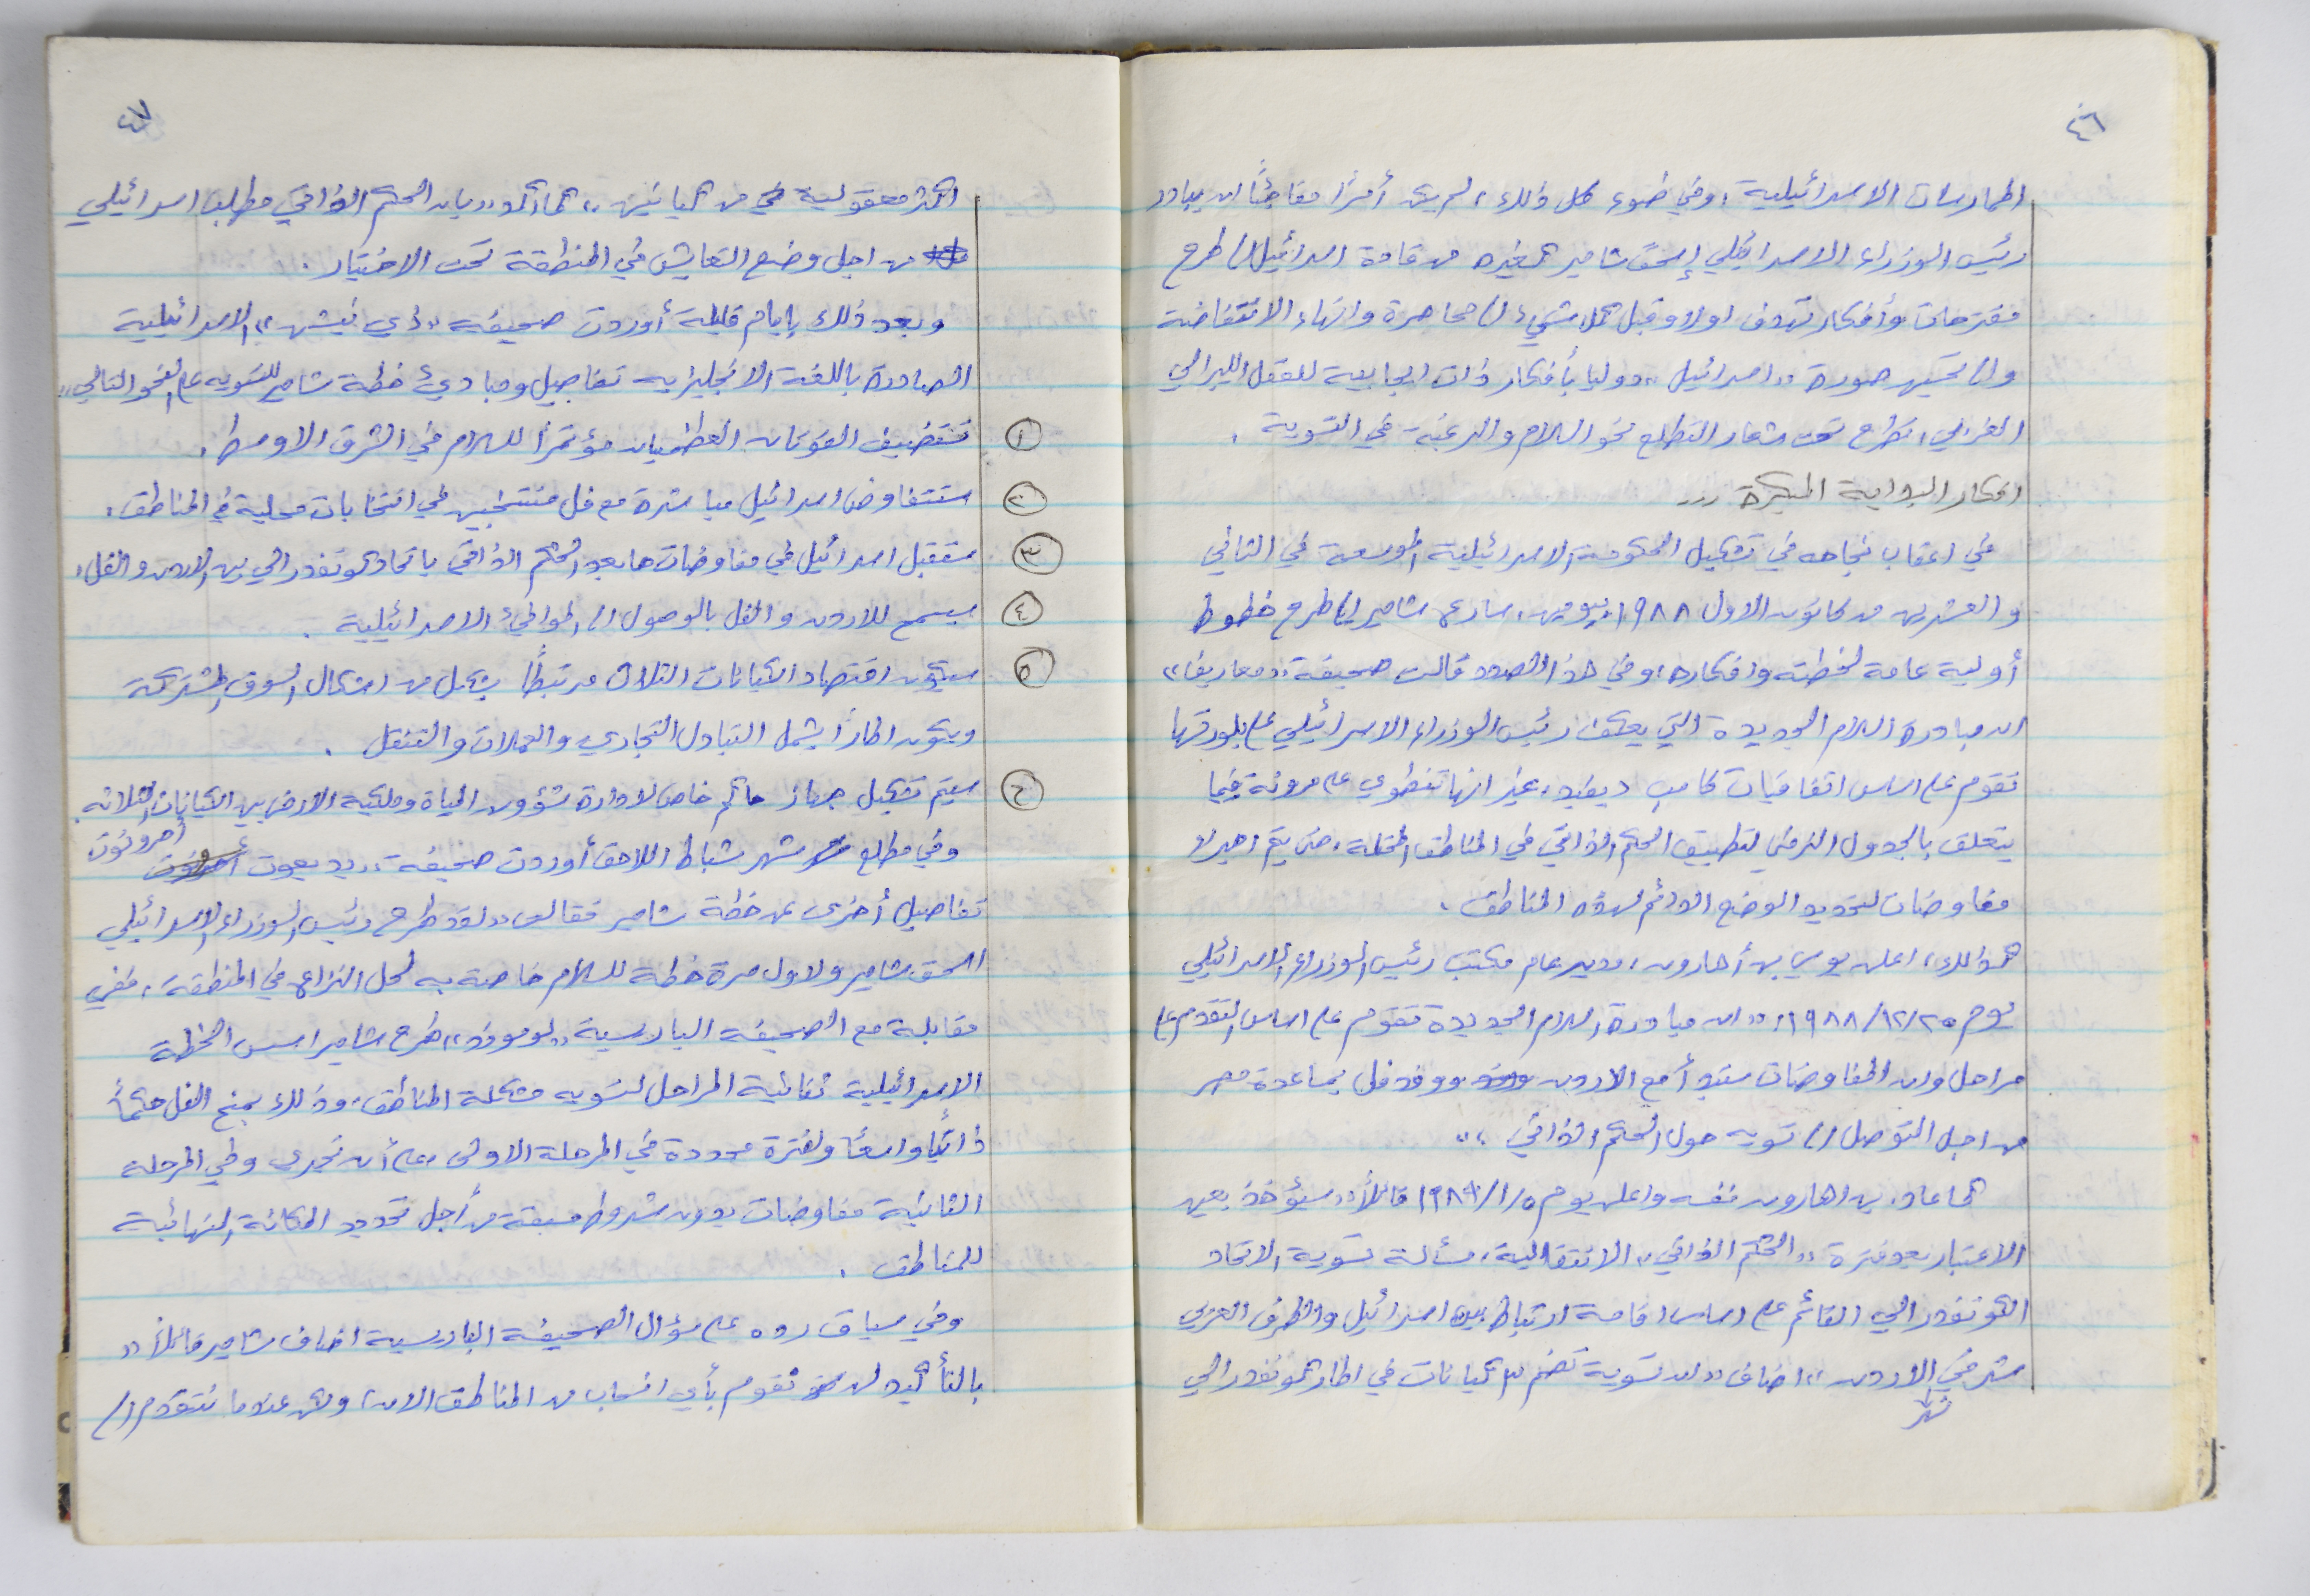 ٤٦
الممارسات الاسرائيلية، وفي ضوء كل ذلك، لم يكن أمراً مفاجئاً ان يبادر
رئيس الوزراء الاسرائيلي إسحق شامير كغيره من قادة اسرائيل الى طرح
مقترحات وأفكار تهدف اولا وقبل كل شيء الى محاصرة وانهاء الانتفاضة
والى تحسين صورة "اسرائيل" دوليا بأفكار ذات ايجابية للعقل الليبرالي
الغربي، تطرح تحت شعار التطلع نحو السلام والرغبة في التسوية.
افكار البداية المبكرة ...
في اعقاب نجاحه في تشكيل الحكومة الاسرائيلية الموسعة في الثاني
والعشرين من كانون الاول ١٩٨٨ بيومين، سارع شامير الى طرح خطوط
أولية عامة لخطته وافكاره، وفي هذا الصدد قالت صحيفة "معاريف"
ان مبادرة السلام الجديدة التي يعكف رئيس الوزراء الاسرائيلي على بلورتها
تقوم على اساس اتفاقيات كامب ديفيد، غير انها تنطوي على مرونة فيما
يتعلق بالجدول الزمني لتطبيق الحكم الذاتي في المناطق المحتلة، حتى يتم اجراء
مفاوضات لتحديد الوضع الدائم لهذه المناطق.
كذلك، اعلن يوسي بن أهارون، مدير عام مكتب رئيس الوزراء الاسرائيلي
يوم ١٩٨٨/١٢/٢٥، "ان مبادرة السلام الجديدة تقوم على اساس التقدم على
مراحل وان المفاوضات ستبدأ مع الاردن ووفد فل بمساعدة مصر
من اجل التوصل الى تسوية حول الحكم الذاتي".
كما عاد بن اهارون نفسه واعلن يوم ١٩٨٩/١/٥ قائلاً: "سيؤخذ بعين
الاعتبار بعد فترة "الحكم الذاتي" الانتقالية، مسألة تسوية الاتحاد
الكونفدرالي القائم على اساس اقامة ارتباط بين اسرائيل والطرف العربي
شرقي نهر الاردن" اضاف "ان تسوية تضم ٣ كيانات في اطار كونفدرالي
٤٧
اكثر معقولية من كيانين"، كما أكد "بان الحكم الذاتي مطلب اسرائيلي
من اجل وضع التعايش في المنطقة تحت الاختبار.
وبعد ذلك بإيام قليلة أوردت صحيفة "ذي نيشن" الاسرائيلية
الصادرة باللغة الانجليزيه تفاصيل ومبادئ خطة شامير للتسويه على النحو التالي:
١ تستضيف القوتان العظميان مؤتمراً للسلام في الشرق الاوسط.
٢ ستتفاوض اسرائيل مباشرة مع فل منتخبين في انتخابات محلية في المناطق.
٣ ستقبل اسرائيل في مفاوضات ما بعد الحكم الذاتي باتحاد كونفدرالي بين الاردن والفل.
٤ سيسمح للاردن والفل بالوصول الى الموانئ الاسرائيلية.
٥ سيكون اقتصاد الكيانات الثلاث مرتبطاً بشكل من اشكال السوق المشتركة
ويكون اطاراً يشمل التبادل التجاري والعملات والتنقل.
٦ سيتم تشكيل جهاز حاكم خاص لادارة شؤون المياة وملكية الارض بين الكيانات الثلاثه.
وفي مطلع شهر شباط اللاحق أوردت صحيفة "يديعوت أحرونوت
تفاصيل أخرى عن خطة شامير فقالت "لقد طرح رئيس الوزراء الاسرائيلي
اسحق شامير ولاول مرة خطة للسلام خاصة به لحل النزاع في المنطقة، ففي
مقابلة مع الصحيفة الباريسية "لوموند" طرح شامير اسس الخطة
الاسرائيلية ثنائية المراحل لتسويه مشكلة المناطق، وذلك بمنح الفل حكماً
ذاتياً واسعاً ولفترة محددة في المرحلة الاولى، على أن تجرى وفي المرحلة
الثانية مفاوضات بدون شروط مسبقة من أجل تحديد المكانة النهائية
للمناطق.
وفي سياق رده على سؤال الصحيفة الباريسية اضاف شامير قائلاً: "
بالتأكيد لن نقوم بأي انسحاب من المناطق الان، ولكن عندما نتقدم الى